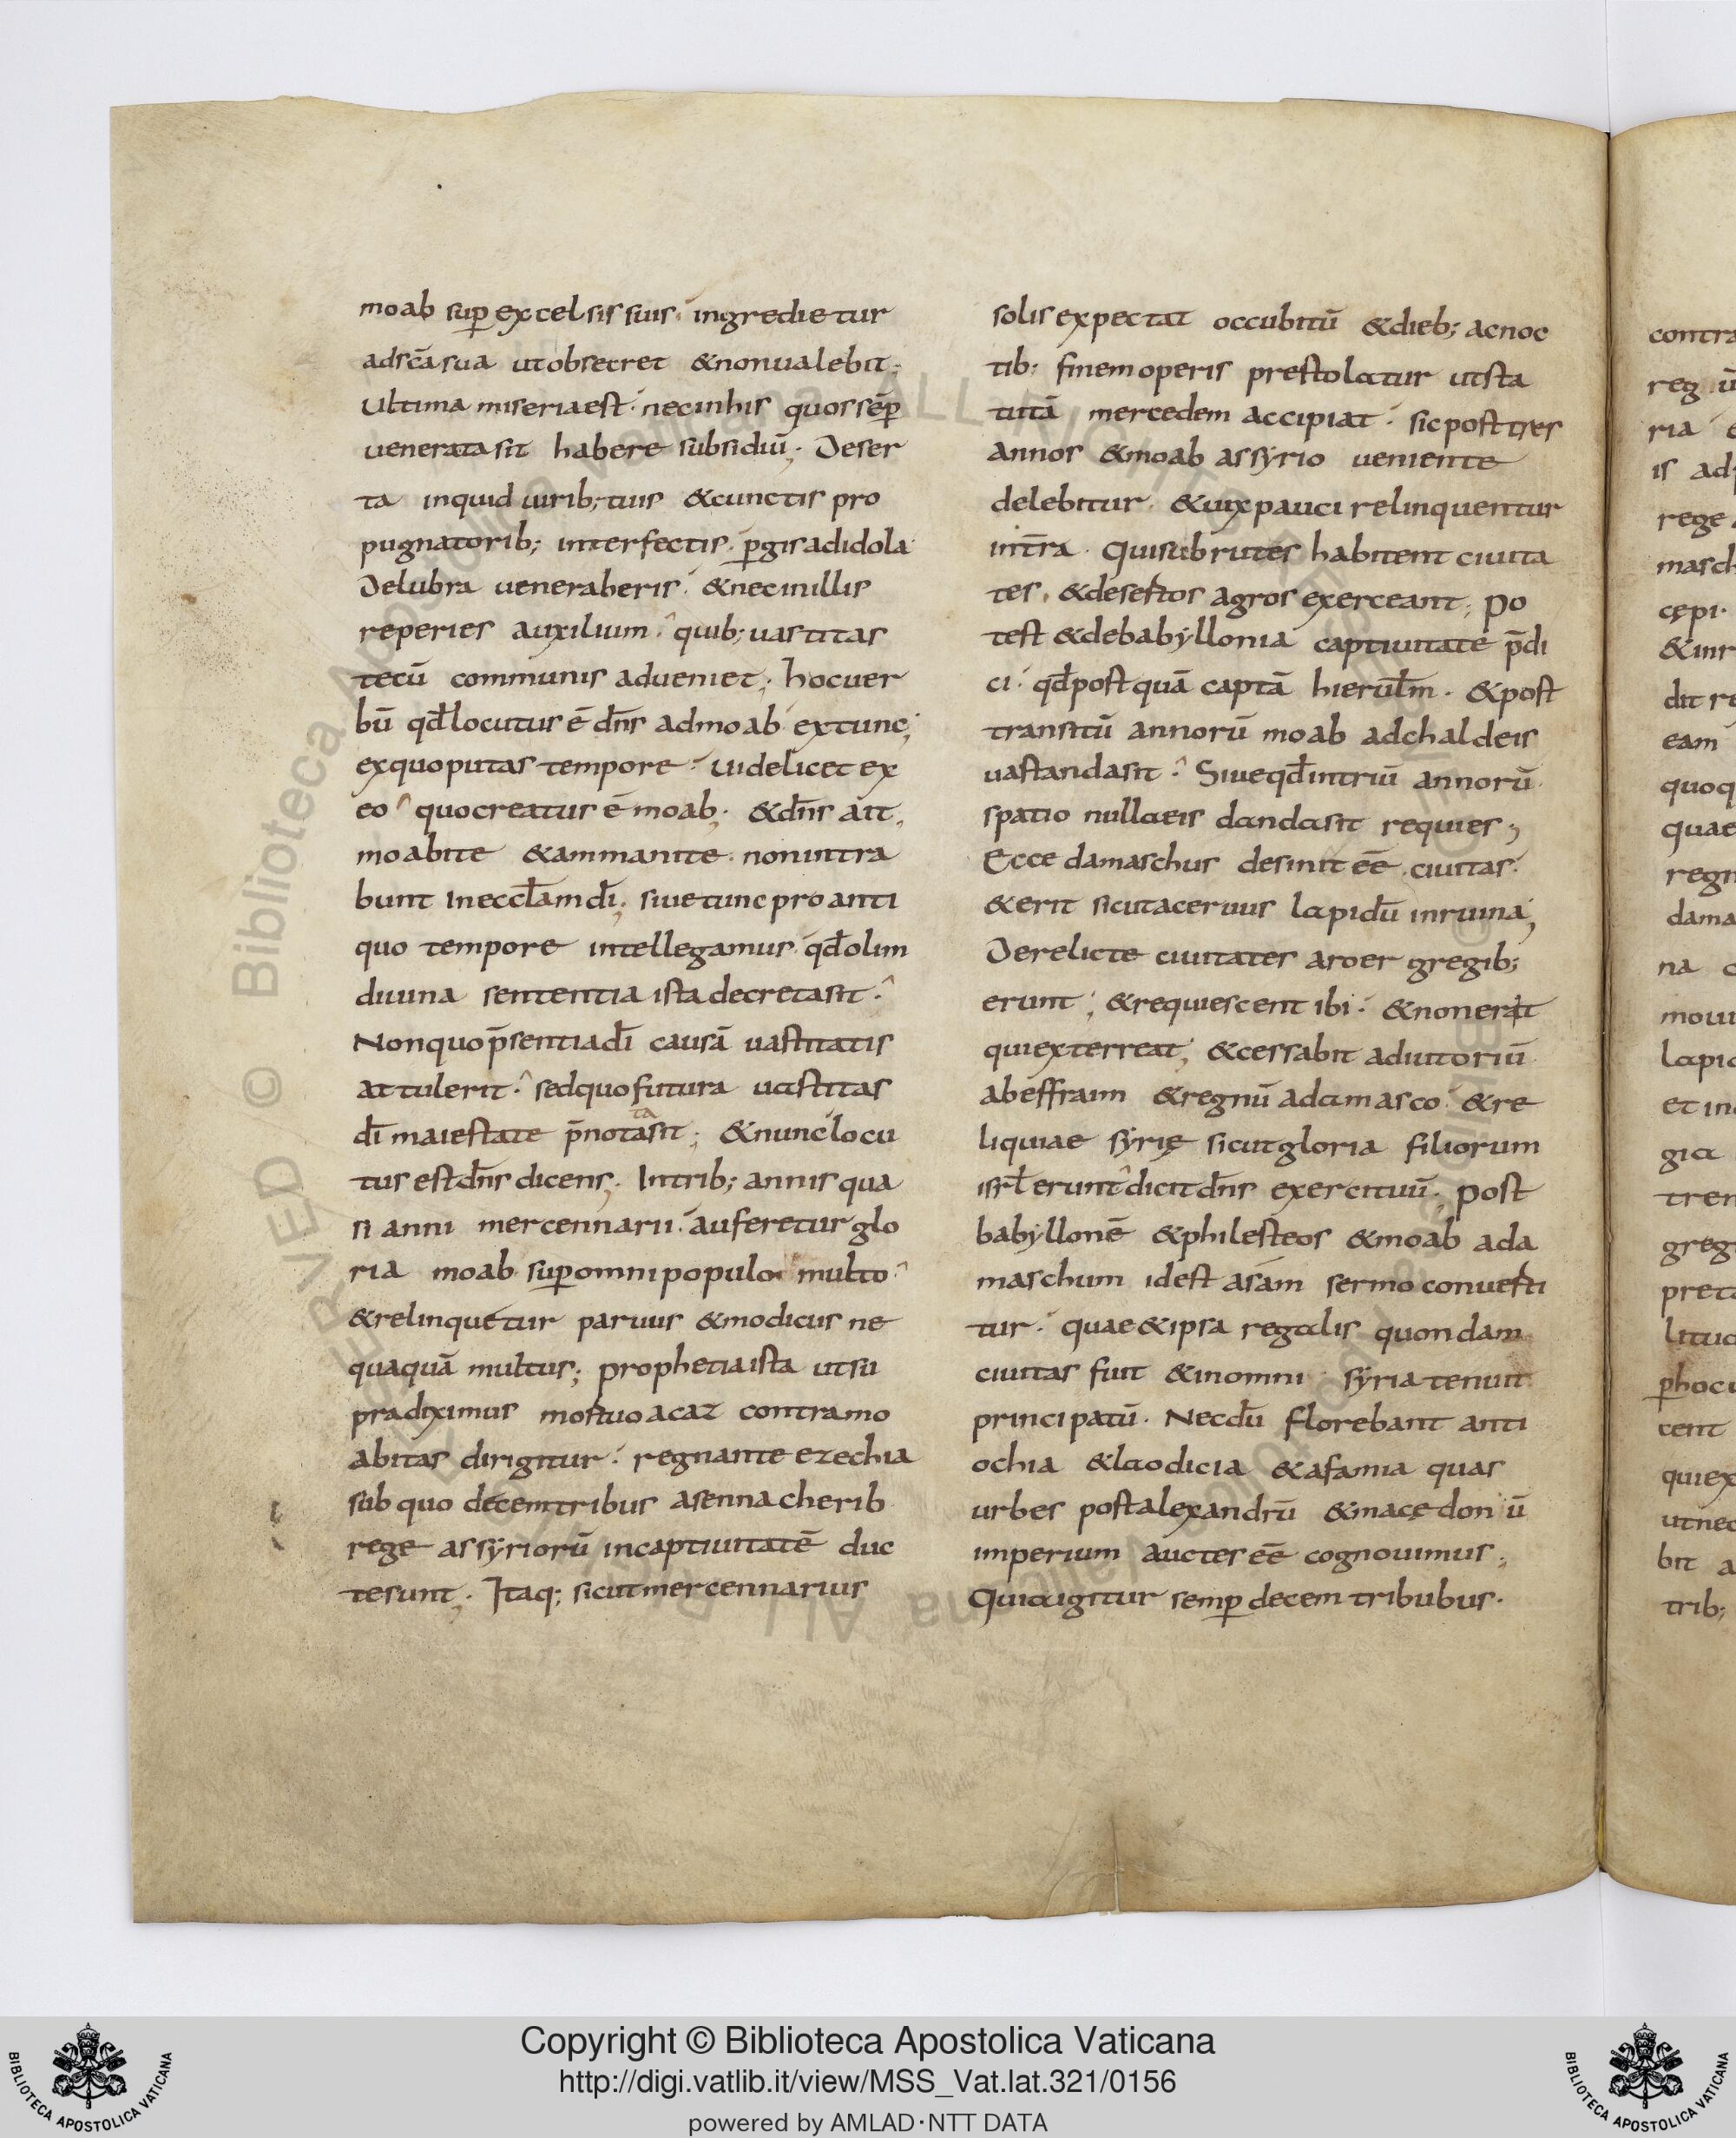 moab sup excelsis suis. ingredietur
ad scā sua ut obsecret & non ualebit;
Ultima miseria est. nec in his quos sēp
uenerata sit habere subsidiū; Deser
ta inquid uirib; tuis & cunctis pro
pugnatorib; interfectis. pgis ad idola
Delubra ueneraberis. & nec in illis
reperies auxilium. quib; uastitas
tecū communis adueniet; hoc uer
bū qđ locutus ē dn̄s ad moab ex tunc;
ex quo putas tempore. uidelicet ex
eo quo creatus ē moab; & dn̄s ait,
moabite & ammanite. non intra
bunt in eccl̄am dī; siue tunc pro anti
quo tempore intellegamus qđ olim
diuina sententia ista decreta sit.
Non quo p̄sentia dī causā uastitatis
attulerit. sed quo futura uastitas
dī maiestate p̄notata sit; & nunc locu
tus est dn̄s dicens; In trib; annis qua
si anni mercennarii. auferetur glo
ria moab sup omni populo multo
& relinquetur paruus & modicus ne
quaquā multus; prophetia ista ut su
pradiximus mortuo acaz contra mo
abitas dirigitur. regnante ezechia
sub quo decem tribus a sennacherib
rege assyriorū in captiuitatē duc
te sunt; Itaq; sicut mercennarius
solis expectat occubitū & dieb; ac noc
tib; finem operis prestolatur ut sta
tutā mercedem accipiat. sic post tres
annos & moab assyrio ueniente
delebitur. & uix pauci relinquentur
in t̄ra. Qui subrutes habitent ciuita
tes. & desertos agros exerceant; Po
test & de babyllonia captiuitate p̄di
ci. qđ post quā captā hierusl̄m. & post
transitū annorū moab a dchaldeis
uastanda sit. Siue qđ in triū annorū
spatio nulla eis danda sit requies;
Ecce damaschus desinit eē ciuitas.
& erit sicut aceruus lapidū in ruina;
Derelicte ciuitates aroer gregib;
erunt; & requiescent ibi. & non erit
qui exterreat; & cessabit adiutoriū
ab effraim & regnū a damasco. & re
liquiae syrię sicut gloria filiorum
isrl̄ erunt dicit dn̄s exercituū; Post
babyllonē & philesteos & moab ad a
maschum id est asam sermo conuerti
tur. quae & ipsa regalis quondam
ciuitas fuit & in omni syria tenuit
principatū. Necdū florebant anti
ochia & laodicia & afamia quas
urbes post alexandrū & macedonū
imperium auctes eē cognouimus;
Quia igitur semp decem tribubus.
Copyright © Biblioteca Apostolica Vaticana
http://digi.vatlib.it/view/MSS_Vat.lat.321/0156
powered by AMLAD·NTT DATA
BIBLIOTECA APOSTOLICA VATICANA
BIBLIOTECA APOSTOLICA VATICANA